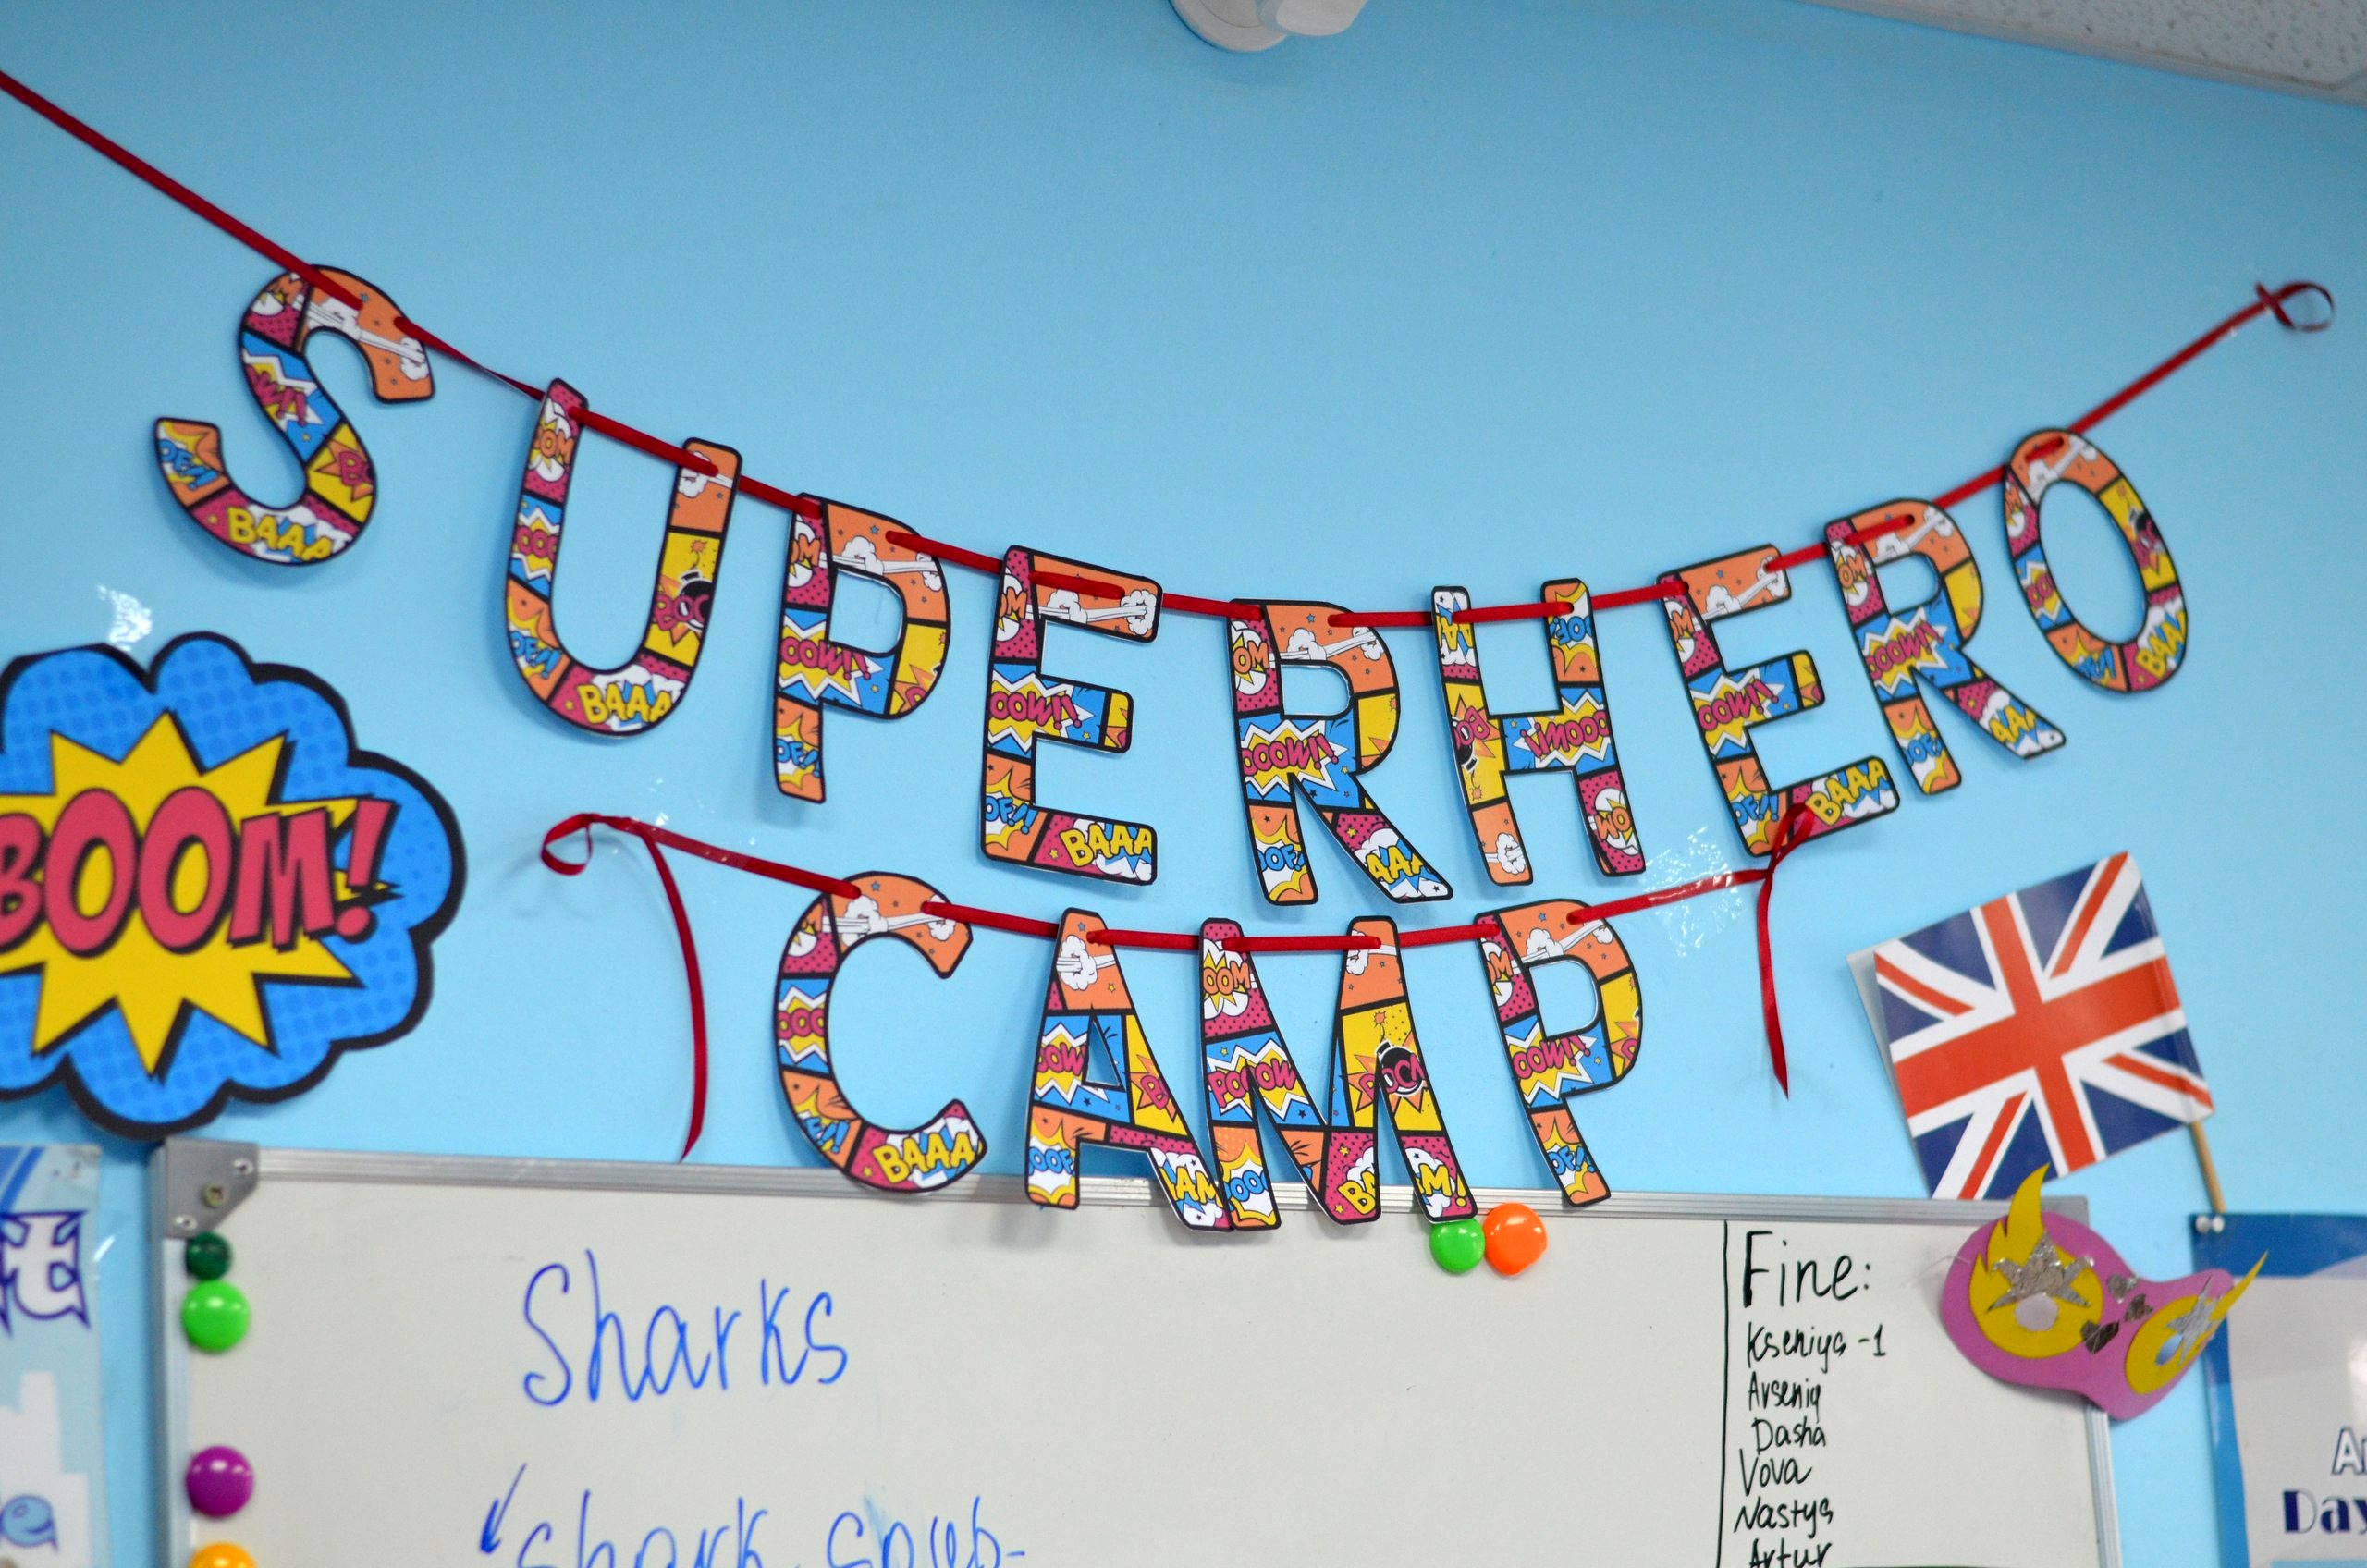 SUPERHERO
CAMP
BOOM!
Sharks
shark
Fine:
Kseniya -1
Arseniy
Dasha
Vova
Nastya
Artur